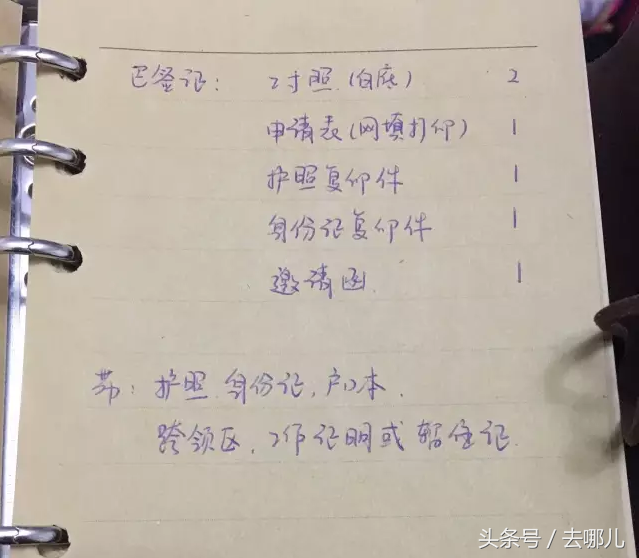 巴签证： 2寸照(白底) 2
申请表(网填打印) 1
护照复印件 1
身份证复印件 1
邀请函 1
护照.身份证,户口本.
跨领区,工作证明或暂住证.
头条号/去哪儿